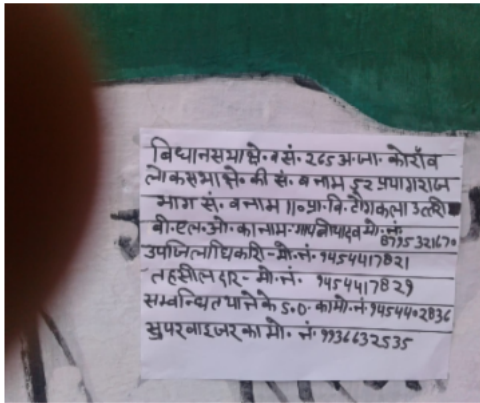 विधानसभा क्षे. व सं. २६5 अ.जा. कोराँव
लोकसभा क्षे. की सं. व नाम 52 प्रयागराज
भाग सं. व नाम ।।० प्रा. वि. टौगकला उत्तरी
बी. एल. ओ. का नाम- मो. नं. 8795321670
उपजिलाधिकारी - मो. नं. 9454417821
तहसीलदार - मो. नं. 9454417829
सम्बन्धित थाने के S.O. का मो. नं. 9454402836
सुपरवाइजर का मो. नं. 9936632535